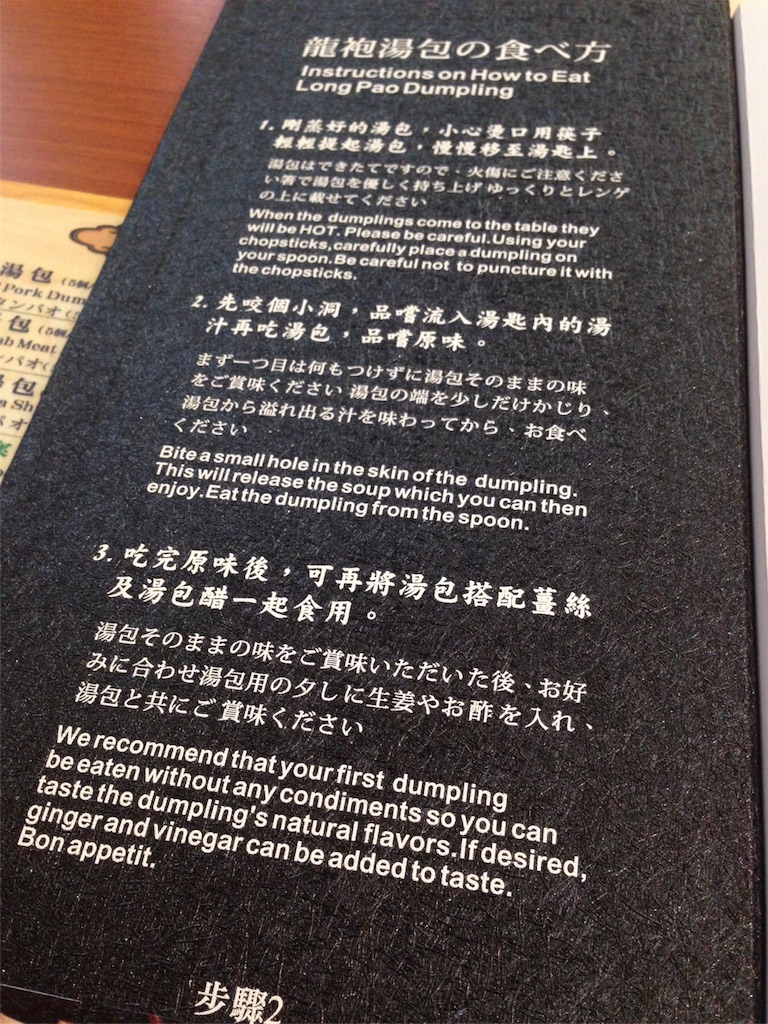 龍袍湯包の食べ方
Instructions on How to Eat
Long Pao Dumpling
1. 剛蒸好的湯包，小心燙口用筷子
輕輕提起湯包，慢慢移至湯匙上。
湯包はできたてですので、火傷にご注意くださ
い箸で湯包を優しく持ち上げ ゆっくりとレンゲ
の上に載せてください
When the dumplings come to the table they
will be HOT. Please be careful.Using your
chopsticks,carefully place a dumpling on
your spoon.Be careful not to puncture it with
the chopsticks.
2. 先咬個小洞，品嚐流入湯匙內的湯
汁再吃湯包，品嚐原味。
まず一つ目は何もつけずに湯包そのままの味
をご賞味ください 湯包の端を少しだけかじり、
湯包から溢れ出る汁を味わってから、お食べ
ください
Bite a small hole in the skin of the dumpling.
This will release the soup which you can then
enjoy.Eat the dumpling from the spoon.
3. 吃完原味後，可再將湯包搭配薑絲
及湯包醋一起食用。
湯包そのままの味をご賞味いただいた後、お好
みに合わせ湯包用の夕しに生姜やお酢を入れ、
湯包と共にご 賞味ください
We recommend that your first dumpling
be eaten without any condiments so you can
taste the dumpling's natural flavors.If desired,
ginger and vinegar can be added to taste.
Bon appetit.
步驟2
湯包
Pork Dum
ンパオ
包
Meat
パオ
包
Sh
オ